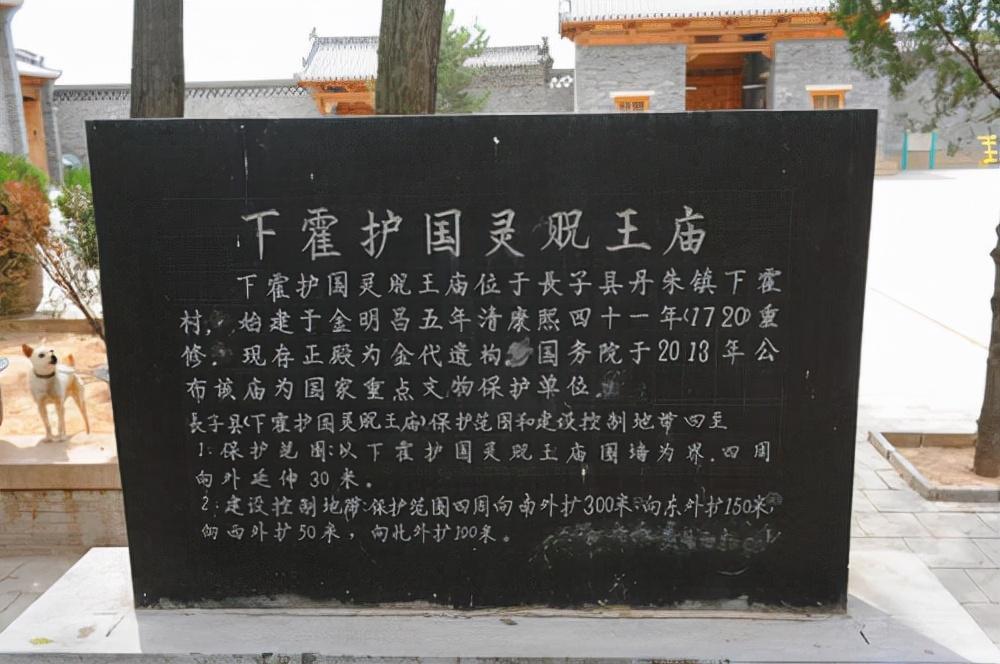 下霍护国灵贶王庙
下霍护国灵贶王庙位于長子县丹朱镇下霍
村,始建于金明昌五年清康熙四十一年(1720)重
修.现存正殿为金代遗构,国务院于2013年公
布该庙为国家重点文物保护单位.
長子县(下霍护国灵贶王庙)保护范围和建设控制地带四至
1:保护范围:以下霍护国灵贶王庙围墙为界.四周
向外延伸30米。
2:建设控制地带:保护范围四周向南外扩300米;向东外扩150米,
向西外扩50米,向北外扩100米。